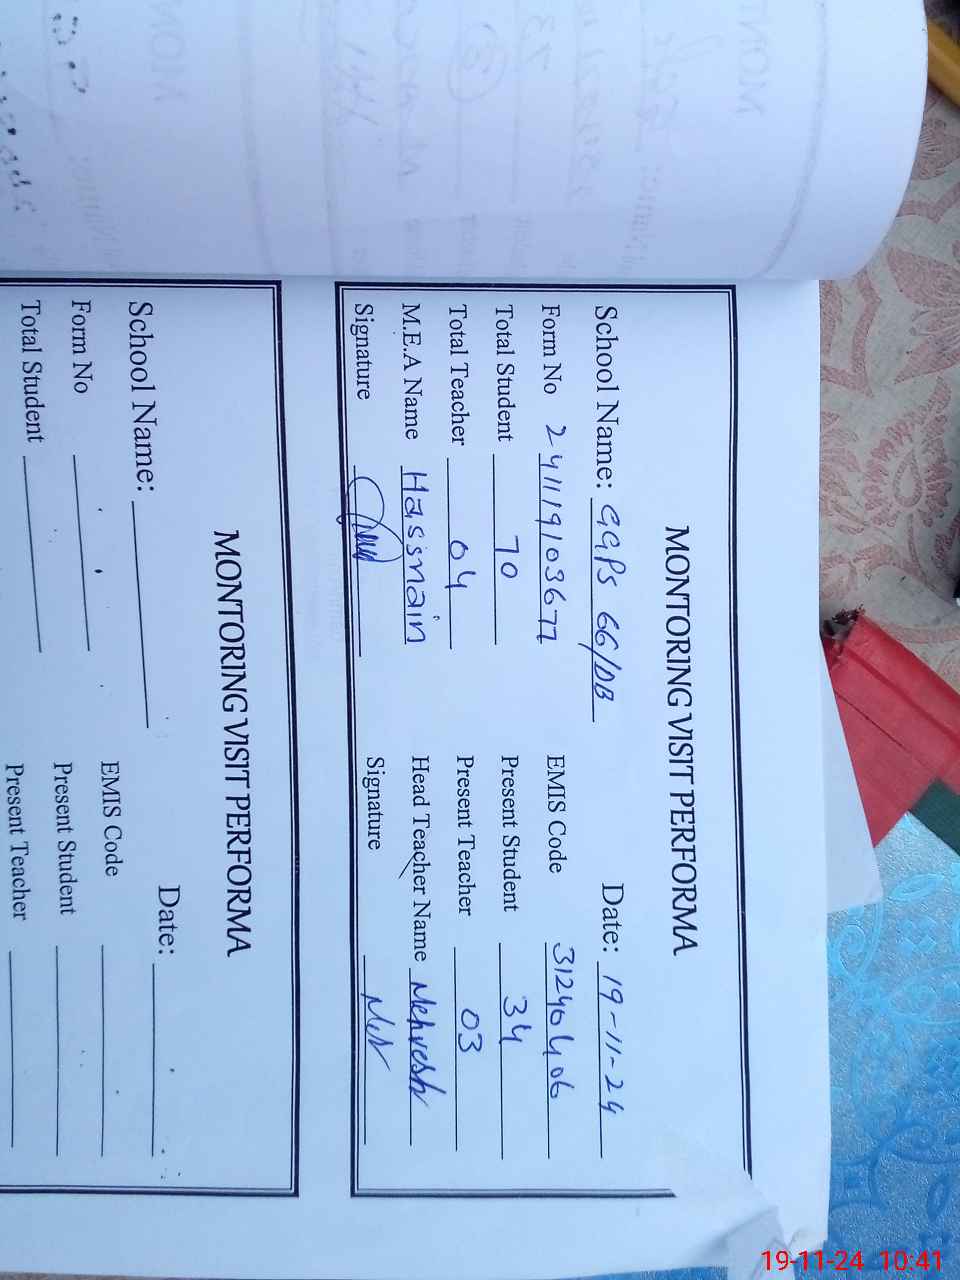 MONTORING VISIT PERFORMA
School Name: GGPS 66/DB Date: 19-11-24
Form No 241119103677 EMIS Code 31240406
Total Student 70 Present Student 34
Total Teacher 04 Present Teacher 03
M.E.A Name Hassnain Head Teacher Name Mehvesh
Signature Signature
MONTORING VISIT PERFORMA
School Name: Date:
Form No EMIS Code
Total Student Present Student
Present Teacher
19-11-24 10:41